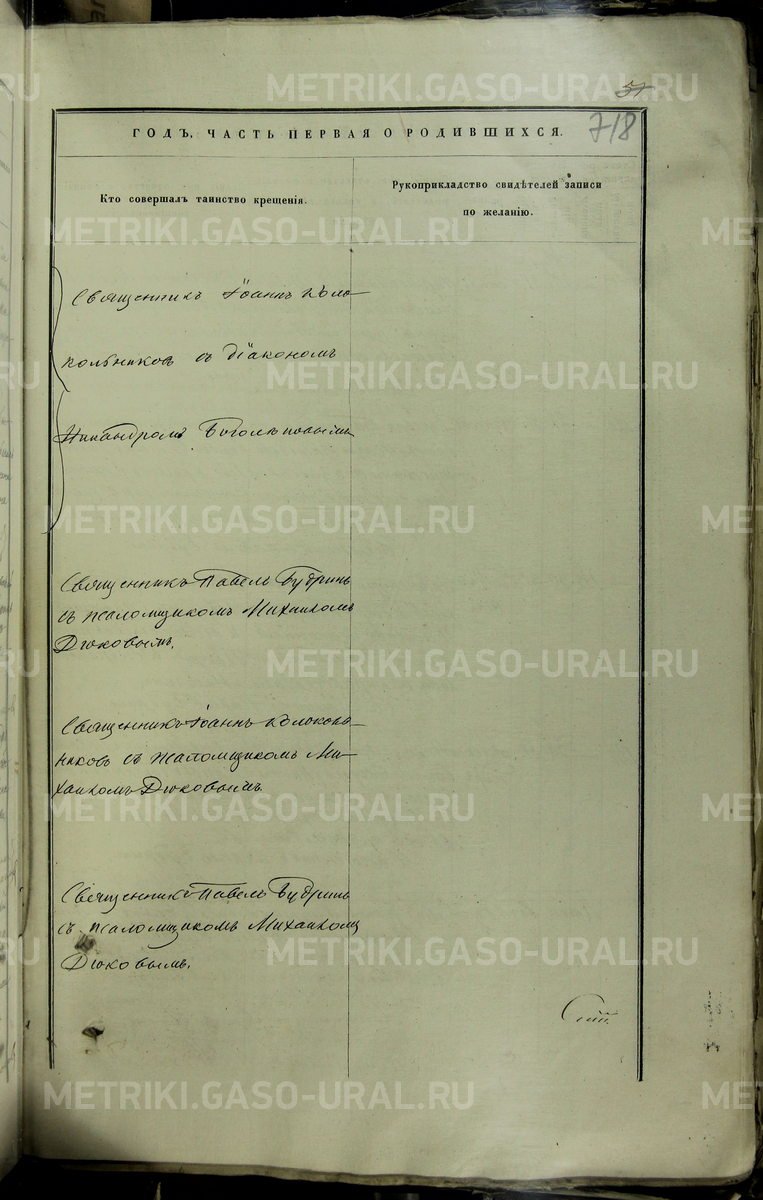 57
718
ГОДЪ, ЧАСТЬ ПЕРВАЯ О РОДИВШИХСЯ.
Кто совершалъ таинство крещенія.
Рукоприкладство свидѣтелей записи
по желанію.
Священникъ Іоаннъ Коло-
кольниковъ съ діакономъ
Никандромъ Боголѣповымъ
Священникъ Павелъ Будринъ
съ псаломщикомъ Михаиломъ
Дюковымъ.
Священникъ Іоаннъ Колоколь-
никовъ съ псаломщикомъ Ми-
хаиломъ Дюковымъ.
Священникъ Павелъ Будринъ
съ псаломщикомъ Михаиломъ
Дюковымъ.
METRIKI.GASO-URAL.RU